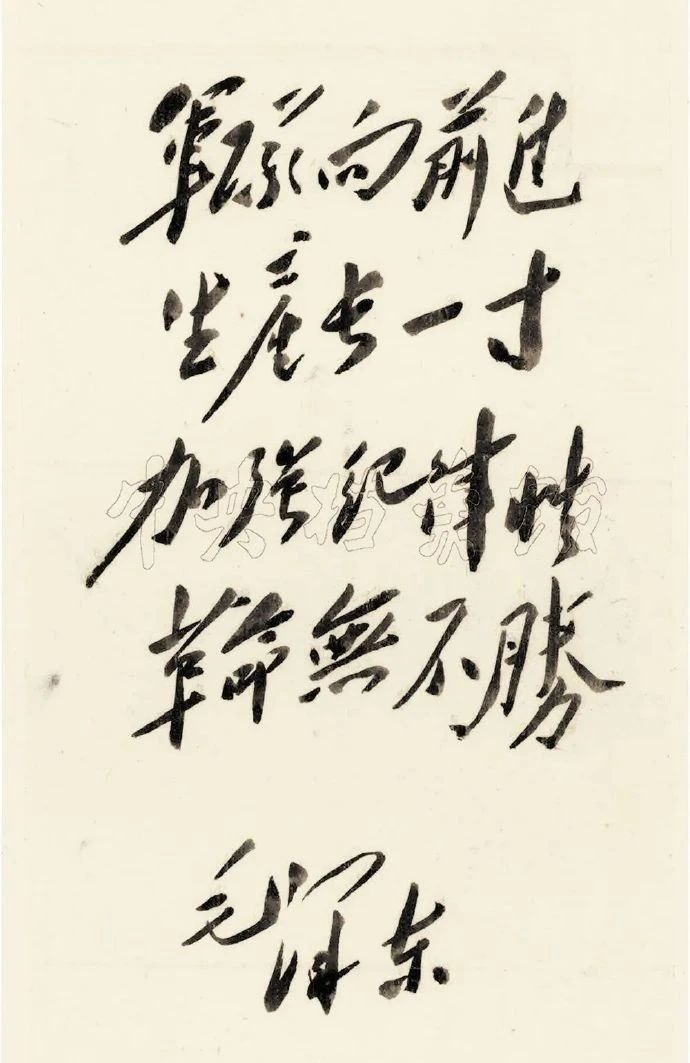 軍队向前進
生產长一寸
加强纪律性
革命無不勝
中央档案馆
毛泽东